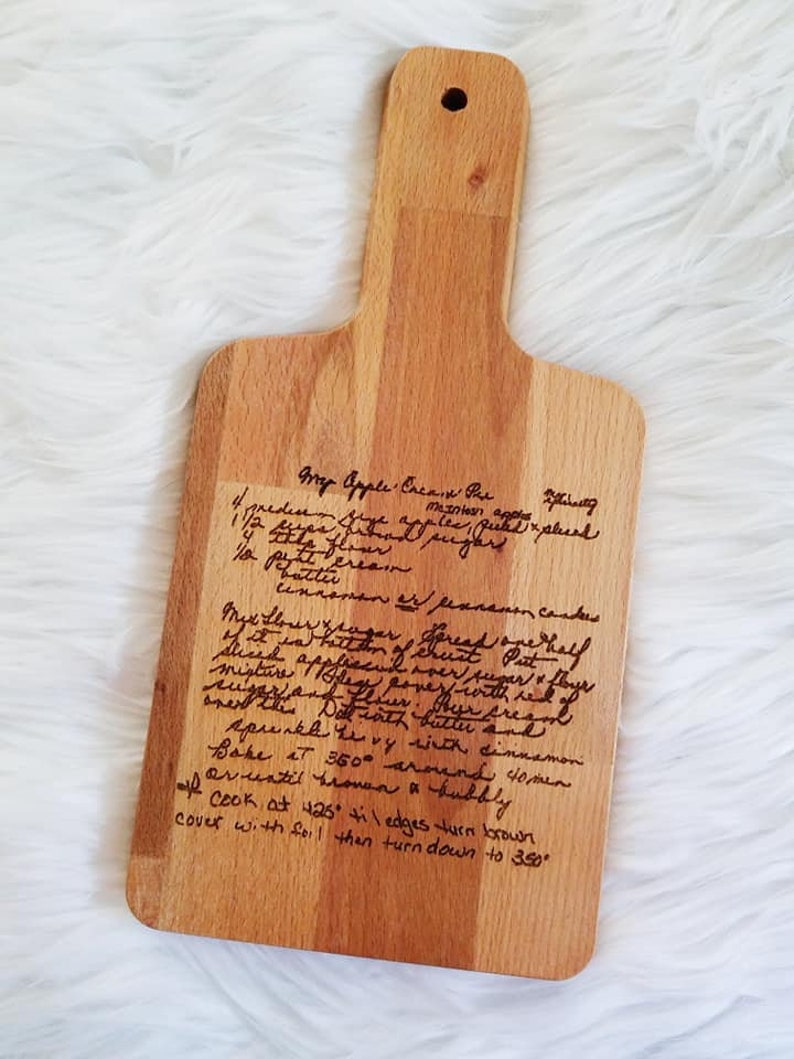 My Apple Cream Pie My specialty
McIntosh apples
4 medium size apples, peeled & sliced
1 1/2 cups brown sugar
4 tbsp flour
1/2 pint cream
butter
cinnamon or cinnamon candies
Mix flour & sugar Spread one half
of it in bottom of crust Put
sliced apples over sugar & flour
mixture cover with rest of
sugar and flour. Pour cream
over this Dot with butter and
sprinkle heavy with cinnamon
Bake at 350° around 40 min
or until brown & bubbly
Cook at 425° til edges turn brown
cover with foil then turn down to 350°